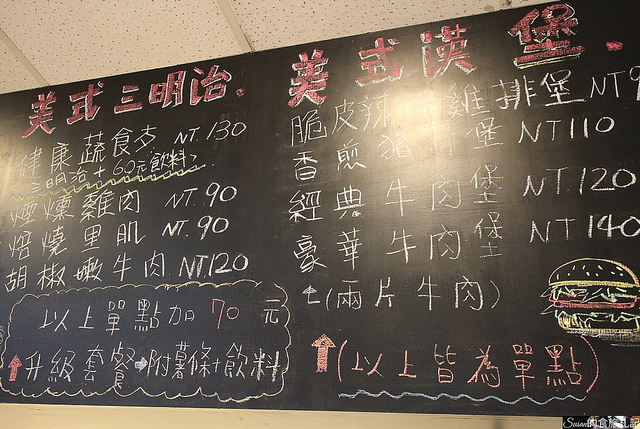 美式三明治.
健康蔬食夯 NT.130
三明治+60元飲料
煙燻雞肉 NT.90
焙燒里肌 NT.90
胡椒嫩牛肉 NT.120
以上單點加70元
↑升級套餐→附薯條+飲料
美式漢堡.
脆皮辣雞排堡 NT9
香煎豬排堡 NT110
經典牛肉堡 NT.120
豪華牛肉堡 NT140
↑(兩片牛肉)
↑(以上皆為單點)
Susan的食旅札記